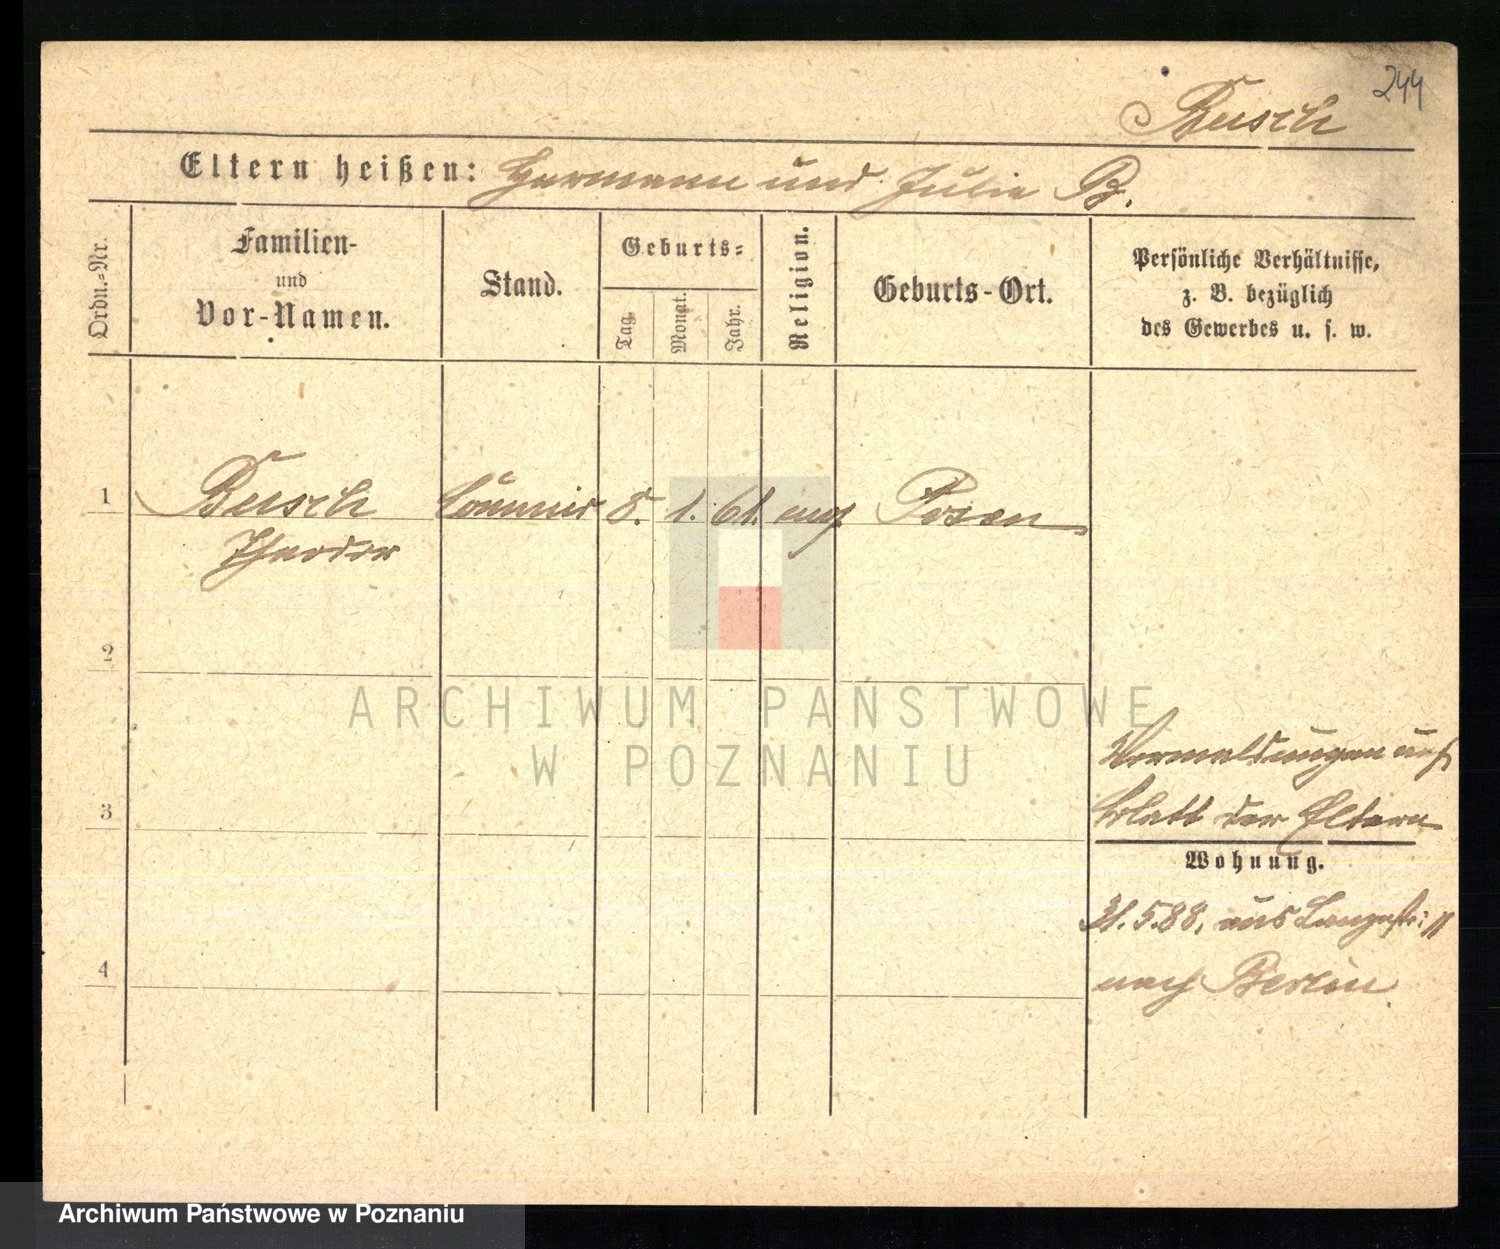 244
Busch
Eltern heißen: Hermann und Julie B.
Ordn.-Nr.
Familien-
und
Vor-Namen.
Stand.
Geburts-
Tag.
Monat.
Jahr.
Religion.
Geburts-Ort.
Persönliche Verhältnisse,
z. B. bezüglich
des Gewerbes u. s. w.
1 Busch Commis 8. 1. 61. evg. Posen
Theodor
2
3
4
Vermeldungen auf
Blatt der Eltern
Wohnung.
31.5.88. aus Langestr: 11
nach Berlin.
ARCHIWUM PAŃSTWOWE
W POZNANIU
Archiwum Państwowe w Poznaniu